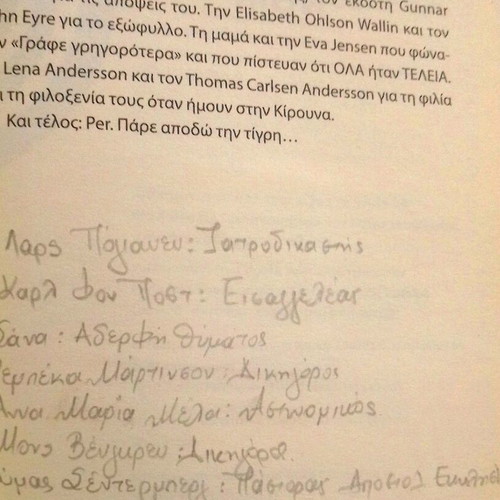 τις απόψεις του. Την Elisabeth Ohlson Wallin και τον
hn Eyre για το εξώφυλλο. Τη μαμά και την Eva Jensen που φώνα-
ν «Γράφε γρηγορότερα» και που πίστευαν ότι ΟΛΑ ήταν ΤΕΛΕΙΑ.
Lena Andersson και τον Thomas Carlsen Andersson για τη φιλία
ι τη φιλοξενία τους όταν ήμουν στην Κίρουνα.
Και τέλος: Per. Πάρε αποδώ την τίγρη...
Λαρς Πόχιανεν: Ιατροδικαστής
Καρλ φον Ποστ: Εισαγγελέας
Σάνα: Αδερφή θύματος
εμπέκα Μάρτινσον: Δικηγόρος
Άννα Μαρία Μέλα: Αστυνομικός
Μονς Βένγκρεν: Δικηγόρος
όμας Σέντερμπεργ: Πάστορας Αποστολ Εκκλησ